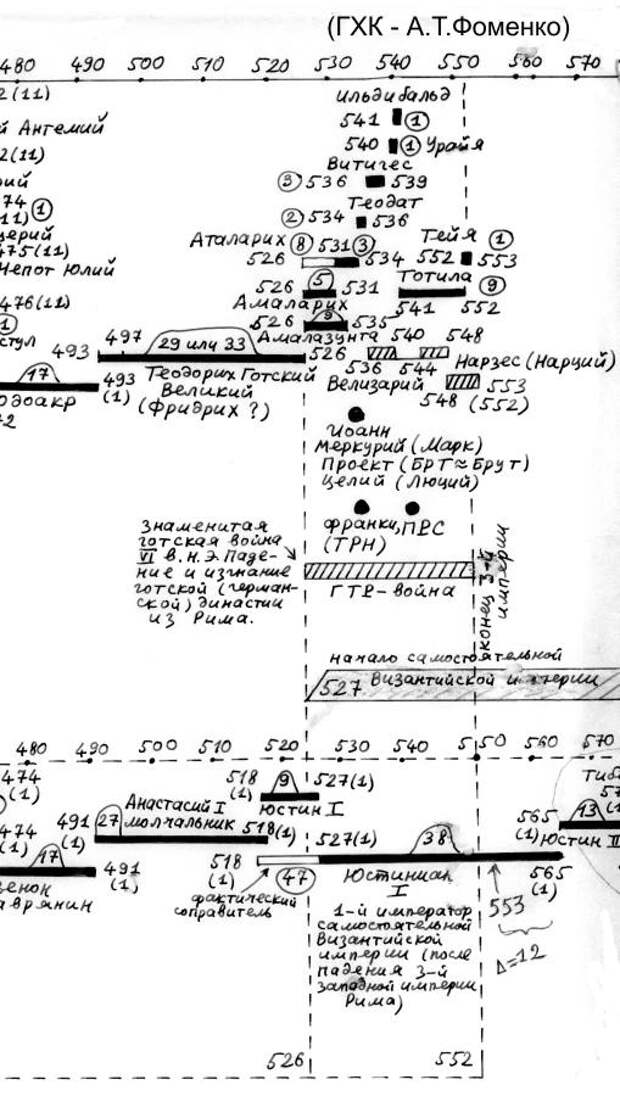 (ГХК - А.Т.Фоменко)
480 490 500 510 520 530 540 550 560 570
2(11)
й Антемий
2(11)
рий
74 (1)
11)
церий
475(11)
Непот Юлий
476(11)
(1)
стул
Ильдибальд
541 (1)
540 (1) Урайя
Витигес
(3) 536 539
Теодат
(2) 534 536
Аталарих (8) 531 (3)
526 534
Тейя (1)
552 553
526 (5) 531
Амаларих
Тотила (9)
541 552
526 (9) 535
Амалазунта
493 497 29 или 33 526
Теодорих Готский
Великий
(Фридрих ?)
540 548
536 544 Нарзес (Нарций)
Велизарий 553
548 (552)
17 493
(1)
одоакр
72
Иоанн
Меркурий (Марк)
Проект (БРТ ≈ Брут)
Целий (Люций)
франки, ПРС
(ТРН)
Знаменитая
готская война
VI в. н. э. Паде-
ние и изгнание
готской (герман-
ской) династии
из Рима.
ГТР - война
конец 3-й
империи
начало самостоятельной
527 Византийской империи
480 490 500 510 520 530 540 550 560 570
474
(1)
518 (9) 527(1)
(1) Юстин I
491 27 Анастасий I
(1) молчальник 518(1)
474
(1) 17 491
(1)
енок
аврянин
565 13
(1) Юстин II
Тиб
57
(1
518 527(1) 38
(1) (47) Юстиниан
I
565
(1)
фактический
соправитель
553
Δ=12
1-й император
самостоятельной
Византийской
империи (после
падения 3-й
Западной империи
Рима)
526 552